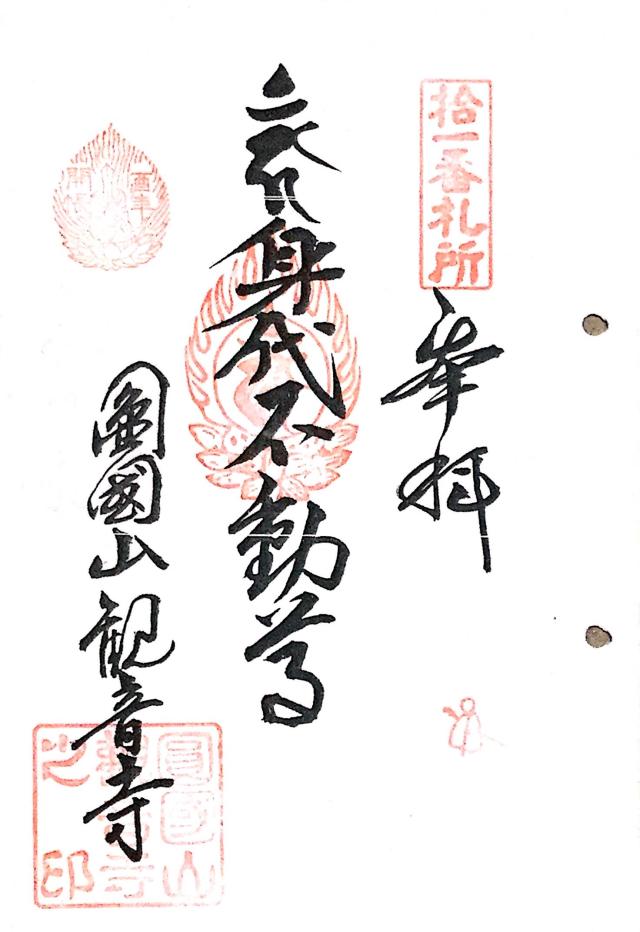 拾一番札所
奉拝
身代不動尊
酉年
圓國山 観音寺
圓國山
觀音寺
之印